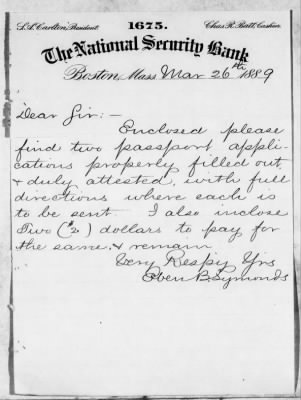 S. A. Carlton, President.
1675.
Chas. R. Batt, Cashier.
The National Security Bank
Boston, Mass Mar 26th 1889
Dear Sir:—
Enclosed please
find two passport appli-
cations properly filled out
& duly attested, with full
directions where each is
to be sent. I also inclose
Two ($2) dollars to pay for
the same & remain
Very Respy Yrs
Eben B. Symonds